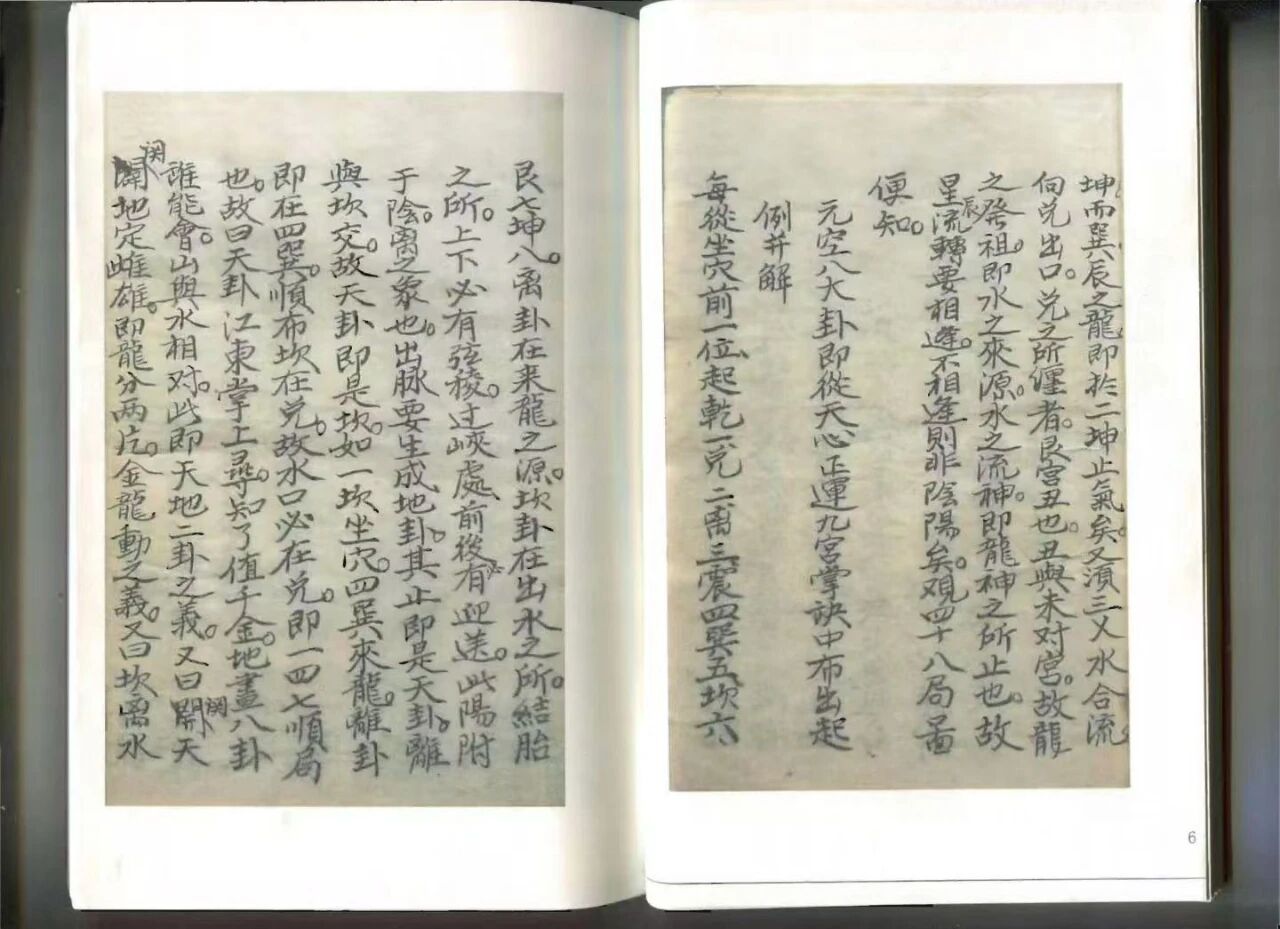 坤而巽辰之龍即於二坤止氣矣。又須三乂水合流
向兌出口。兌之所纏者。艮宮丑也。丑與未对宮。故龍
之發祖。即水之來源。水之流神。即龍神之所止也。故
星辰流轉要相逢。不相逢則非陰陽矣。观四十八局啚
便知。
元空八大卦即從天心正運九宮掌訣中布出起
例并解
每從坐穴前一位。起乾一。兌二。离三。震四。巽五。坎六
艮七。坤八。离卦在来龍之源。坎卦在出水之所。結胎
之所。上下必有弦稜。过峽處。前後有迎送。此陽附
于陰。离之象也。出脉要生成地卦。其止即是天卦。離
與坎交。故天卦即是坎。如一坎坐穴。四巽來龍。離卦
即在四巽。順布坎在兌。故水口必在兌。即一四七順局
也。故曰天卦江東掌上尋。知了值千金。地畫八卦
誰能會。山與水相对。此即天地二卦之義。又曰關天
關地定雌雄。即龍分两片。金龍動之義。又曰坎离水
6